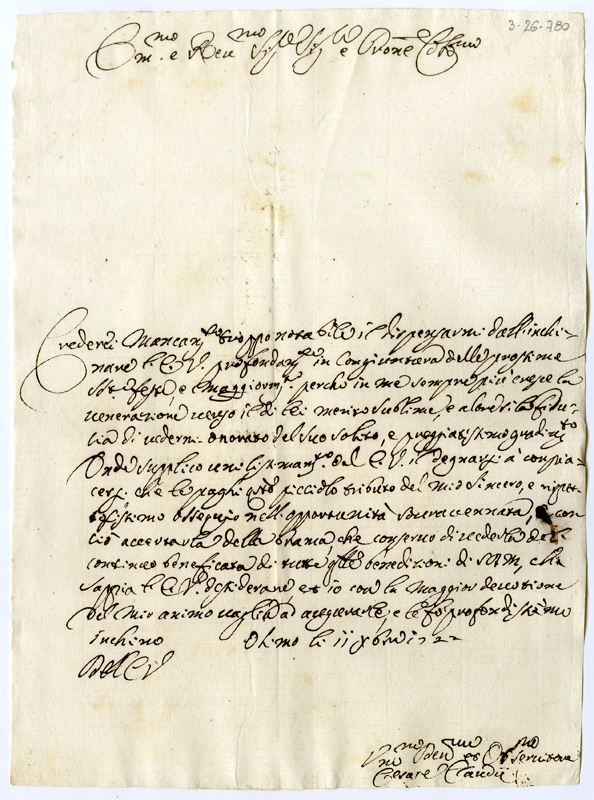 3-26-780
Em.mo e Rev.mo Sig.re Sig.re e Prone Col.mo
Crederei mancam.to troppo notabile il dispensarmi dall'inchi-
nare l'E.V. profondam.te in congiuntura delle prossime
S.te feste, e maggiorm.te perche in me sempre più cresce la
venerazione verso il di lei merito sublime, e
cia di vedermi onorato del suo solito, e pregiatissimo gradim.to
Onde supplico umilissimam.te del E.V. il degnarsi à compia-
cersi, che le paghi q.to picciolo tributo del mio sincero, e rispet-
tosissimo ossequio nell'opportunità sovraccennata, e con
ciò accertarla della brama, che conservo di vederla del
continuo beneficata di tutte q.lle benedizioni di S.D.M., che
sappia l'E.V. desiderare et io con la maggior devotione
del mio animo vaglia ad augurarle, e le fò profondissimo
inchino Osimo li 11 Xbre 1722
Dell'E.V.
Um.mo Dev.mo et Obl.mo Servitore
Cesare Claudii